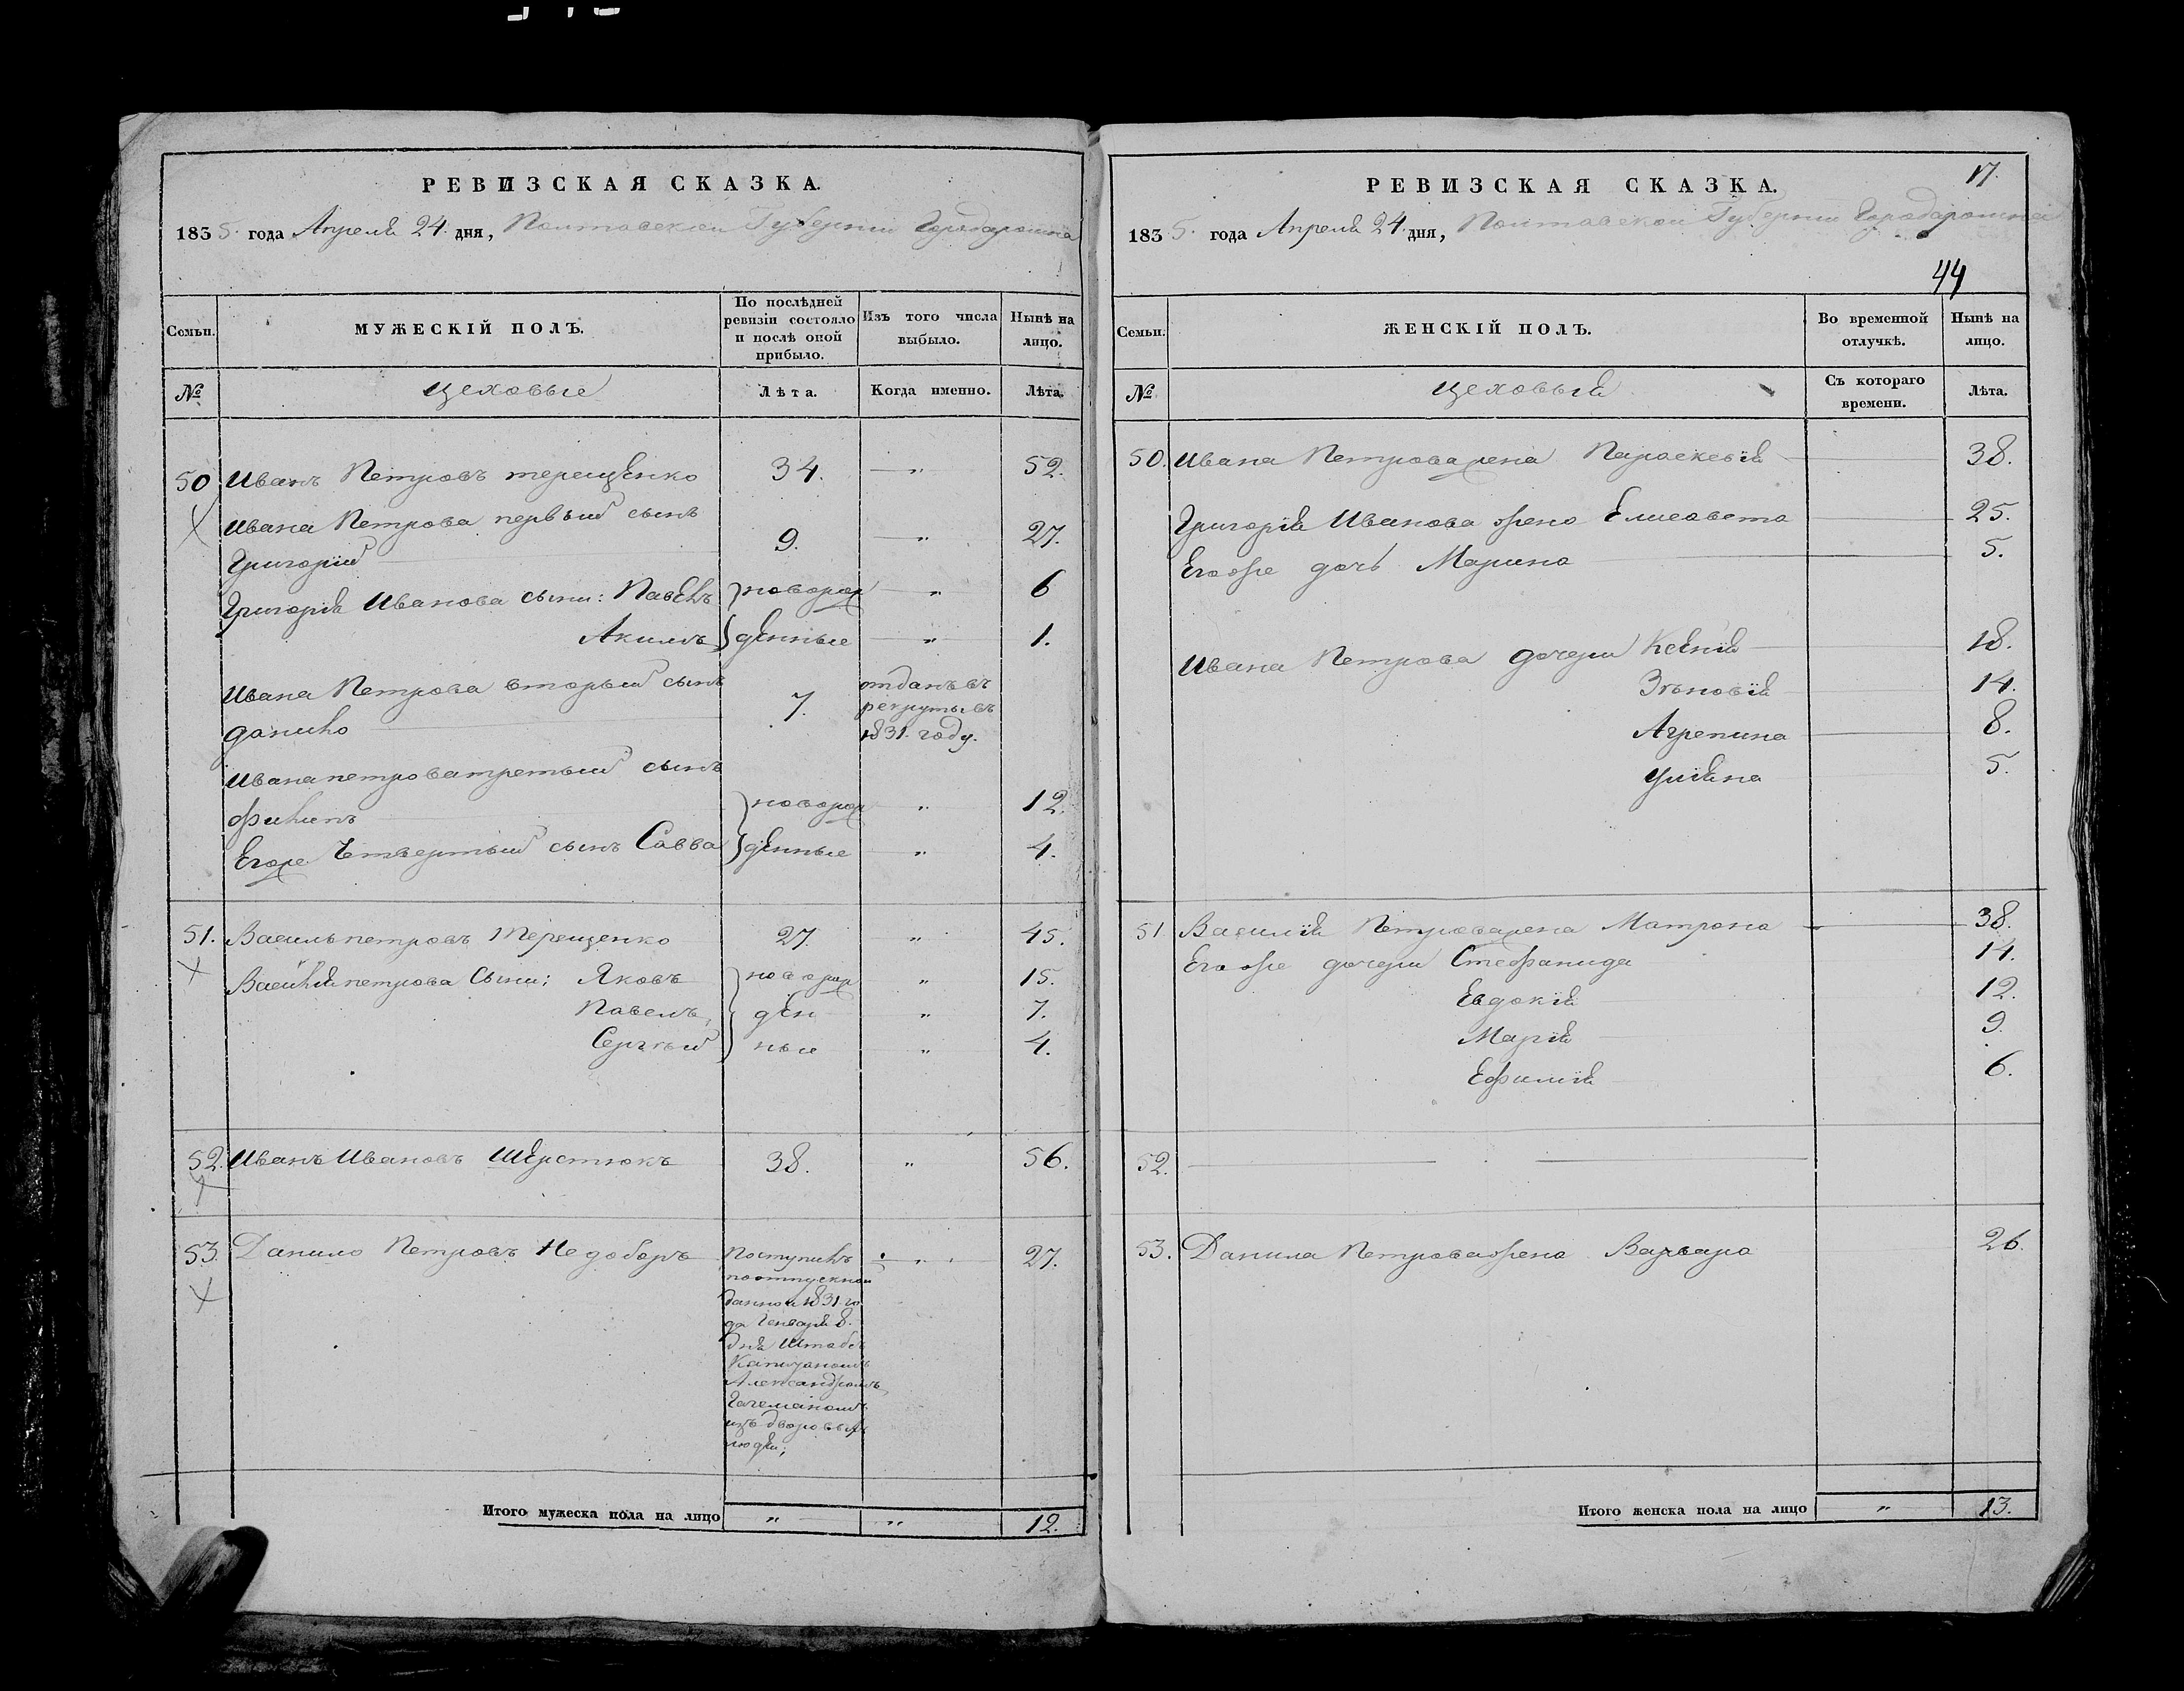 РЕВИЗСКАЯ СКАЗКА.
1835. года Апреля 24. дня, Полтавской Губернии Города
Семьи.
МУЖЕСКІЙ ПОЛЪ.
По послѣдней ревизіи состояло и послѣ оной прибыло.
Изъ того числа выбыло.
Нынѣ на лицо.
№
цеховые
Лѣта.
Когда именно.
Лѣта.
50 Иванъ Петровъ терещенко 34. — „ 52.
Ивана Петрова первый сынъ
Григорій 9. — „ 27.
Григорія Иванова сыни: Павелъ новорож — „ 6
Акимъ денные — „ 1.
Ивана Петрова вторый сынъ
данило 7. отданъ въ
рекруты въ
1831. году.
Ивана петрова третый сынъ
филипъ новорож — „ 12.
Егоже Четвертый сынъ Савва денные — „ 4.
51. Василь петровъ Терещенко 27 „ 45.
Василія петрова Сыни: Яковъ новорож „ 15.
Павелъ, ден „ 7.
Сергѣй ные „ 4.
52. Иванъ Ивановъ Шерстюкъ 38. „ 56.
53. Данило Петровъ Недоборъ Поступилъ — „ 27.
поотпускной
данной 1831. го
да Генваря 8.
дня Штабсъ
Капитаномъ
Александромъ
изъ дворовыхъ
людей;
Итого мужеска пола на лицо „ „ 12.
РЕВИЗСКАЯ СКАЗКА.
17.
1835. года Апреля 24. дня, Полтавской Губернии Города
44
Семьи.
ЖЕНСКІЙ ПОЛЪ.
Во временной отлучкѣ.
Нынѣ на лицо.
№
цеховыя
Съ котораго времени.
Лѣта.
50. Ивана Петрова жена Параскевія 38.
Григорія Иванова жена Елисавета 25.
Егоже дочь Марина 5.
Ивана Петрова дочери Ксенія 18.
Зѣновія 14.
Агрепина 8.
Уліяна 5.
51. Василія Петрова жена Матрона 38.
Егоже дочери Стефанида 14.
Евдокія 12.
Марія 9.
Ефимія 6.
52.
53. Данила Петрова жена Варвара 26.
Итого женска пола на лицо „ 13.